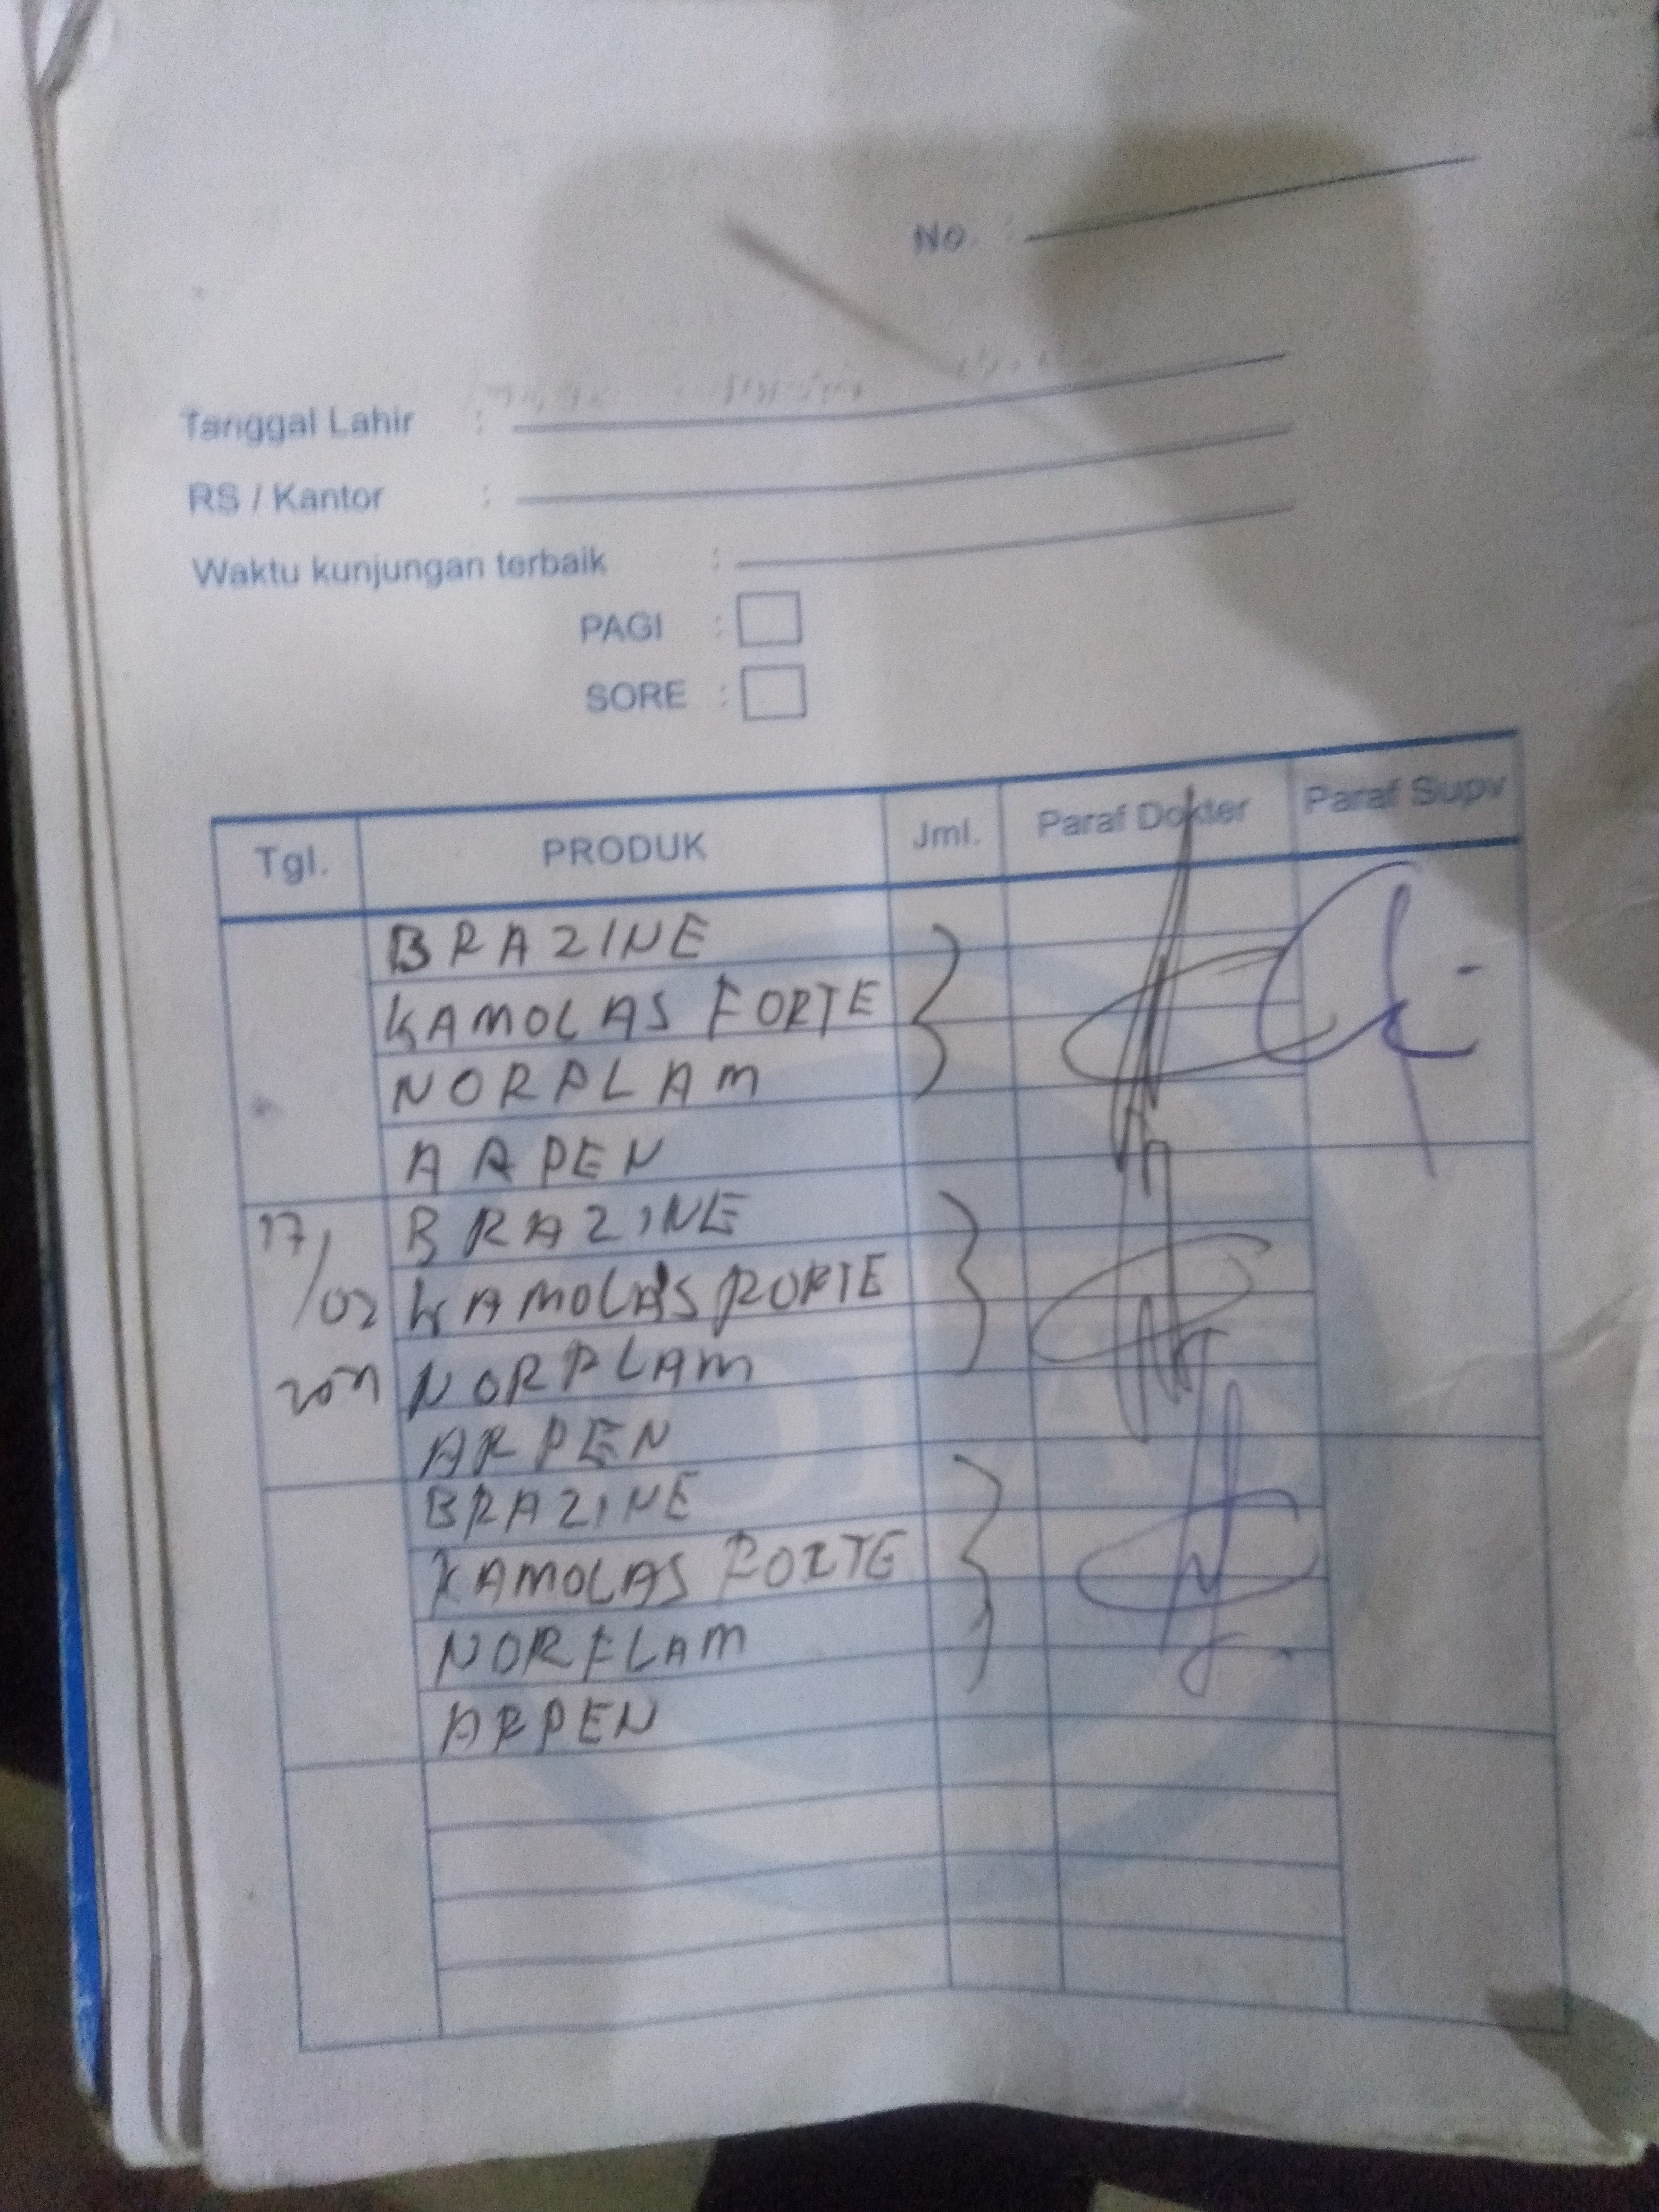 No. :
Tanggal Lahir :
RS / Kantor :
Waktu kunjungan terbaik :
PAGI :
SORE :
Tgl. PRODUK Jml. Paraf Dokter Paraf Supv
BRAZINE
KAMOLAS FORTE
NORFLAM
ARPEN
17/02 BRAZINE
KAMOLAS FORTE
NORFLAM
ARPEN
BRAZINE
KAMOLAS FORTE
NORFLAM
ARPEN